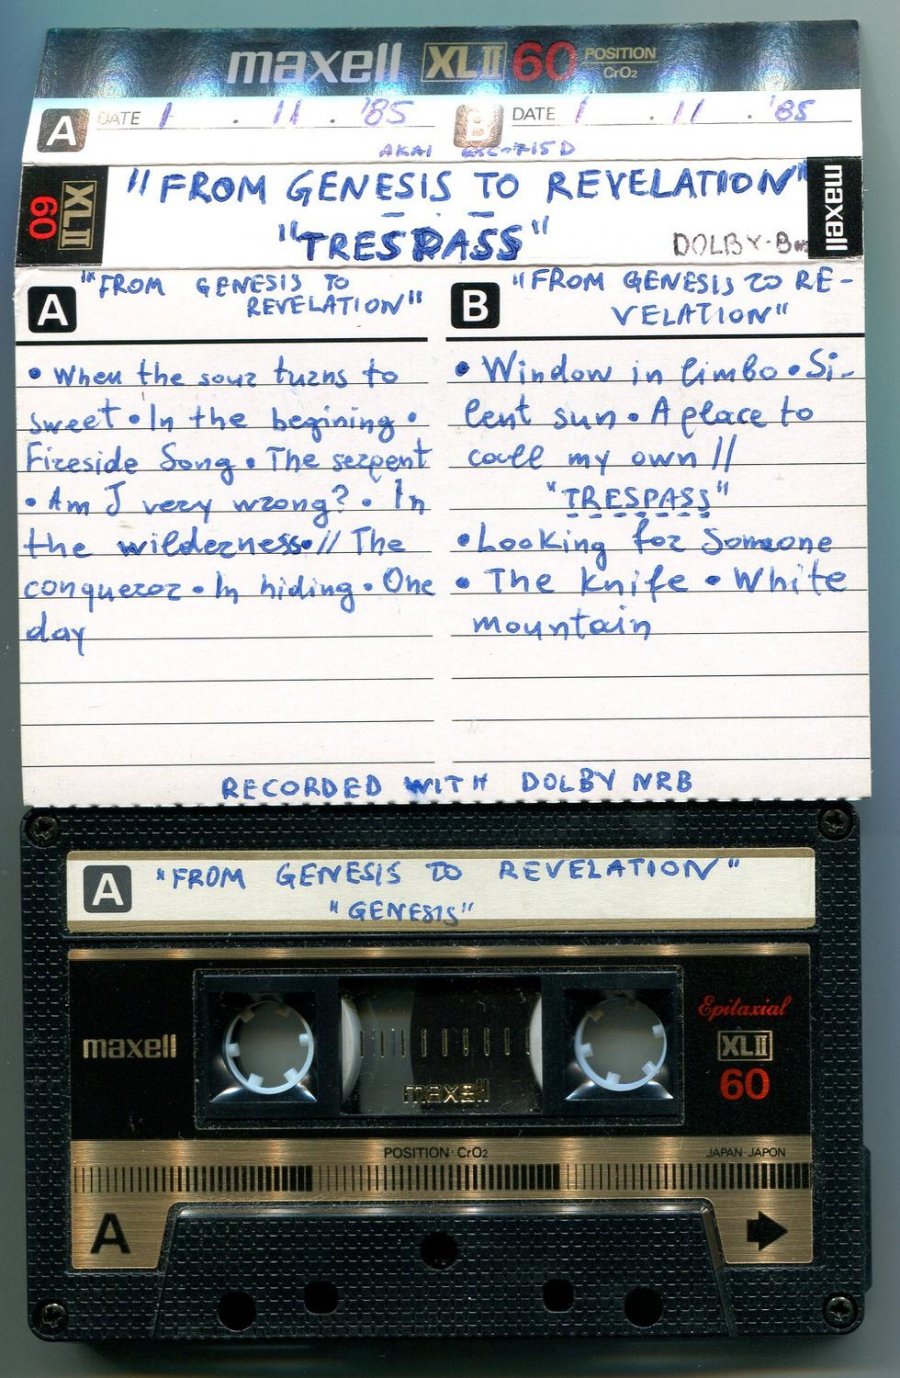 maxell XLII 60 POSITION CrO2
A DATE 1 . 11 . '85 B DATE 1 . 11 . '85
AKAI 715D
XLII 60 "FROM GENESIS TO REVELATION" maxell
"TRESPASS" DOLBY-B
A "FROM GENESIS TO
REVELATION"
• When the sour turns to
sweet • In the begining •
Fireside Song • The serpent
• Am I very wrong? • In
the wilderness • // The
conqueror • In hiding • One
day
B "FROM GENESIS TO RE-
VELATION"
• Window in limbo • Si-
lent sun • A place to
call my own //
"TRESPASS"
• Looking for Someone
• The Knife • White
mountain
RECORDED WITH DOLBY NRB
A "FROM GENESIS TO REVELATION"
"GENESIS"
maxell
maxell
Epitaxial
XLII
60
POSITION·CrO2 JAPAN·JAPON
A